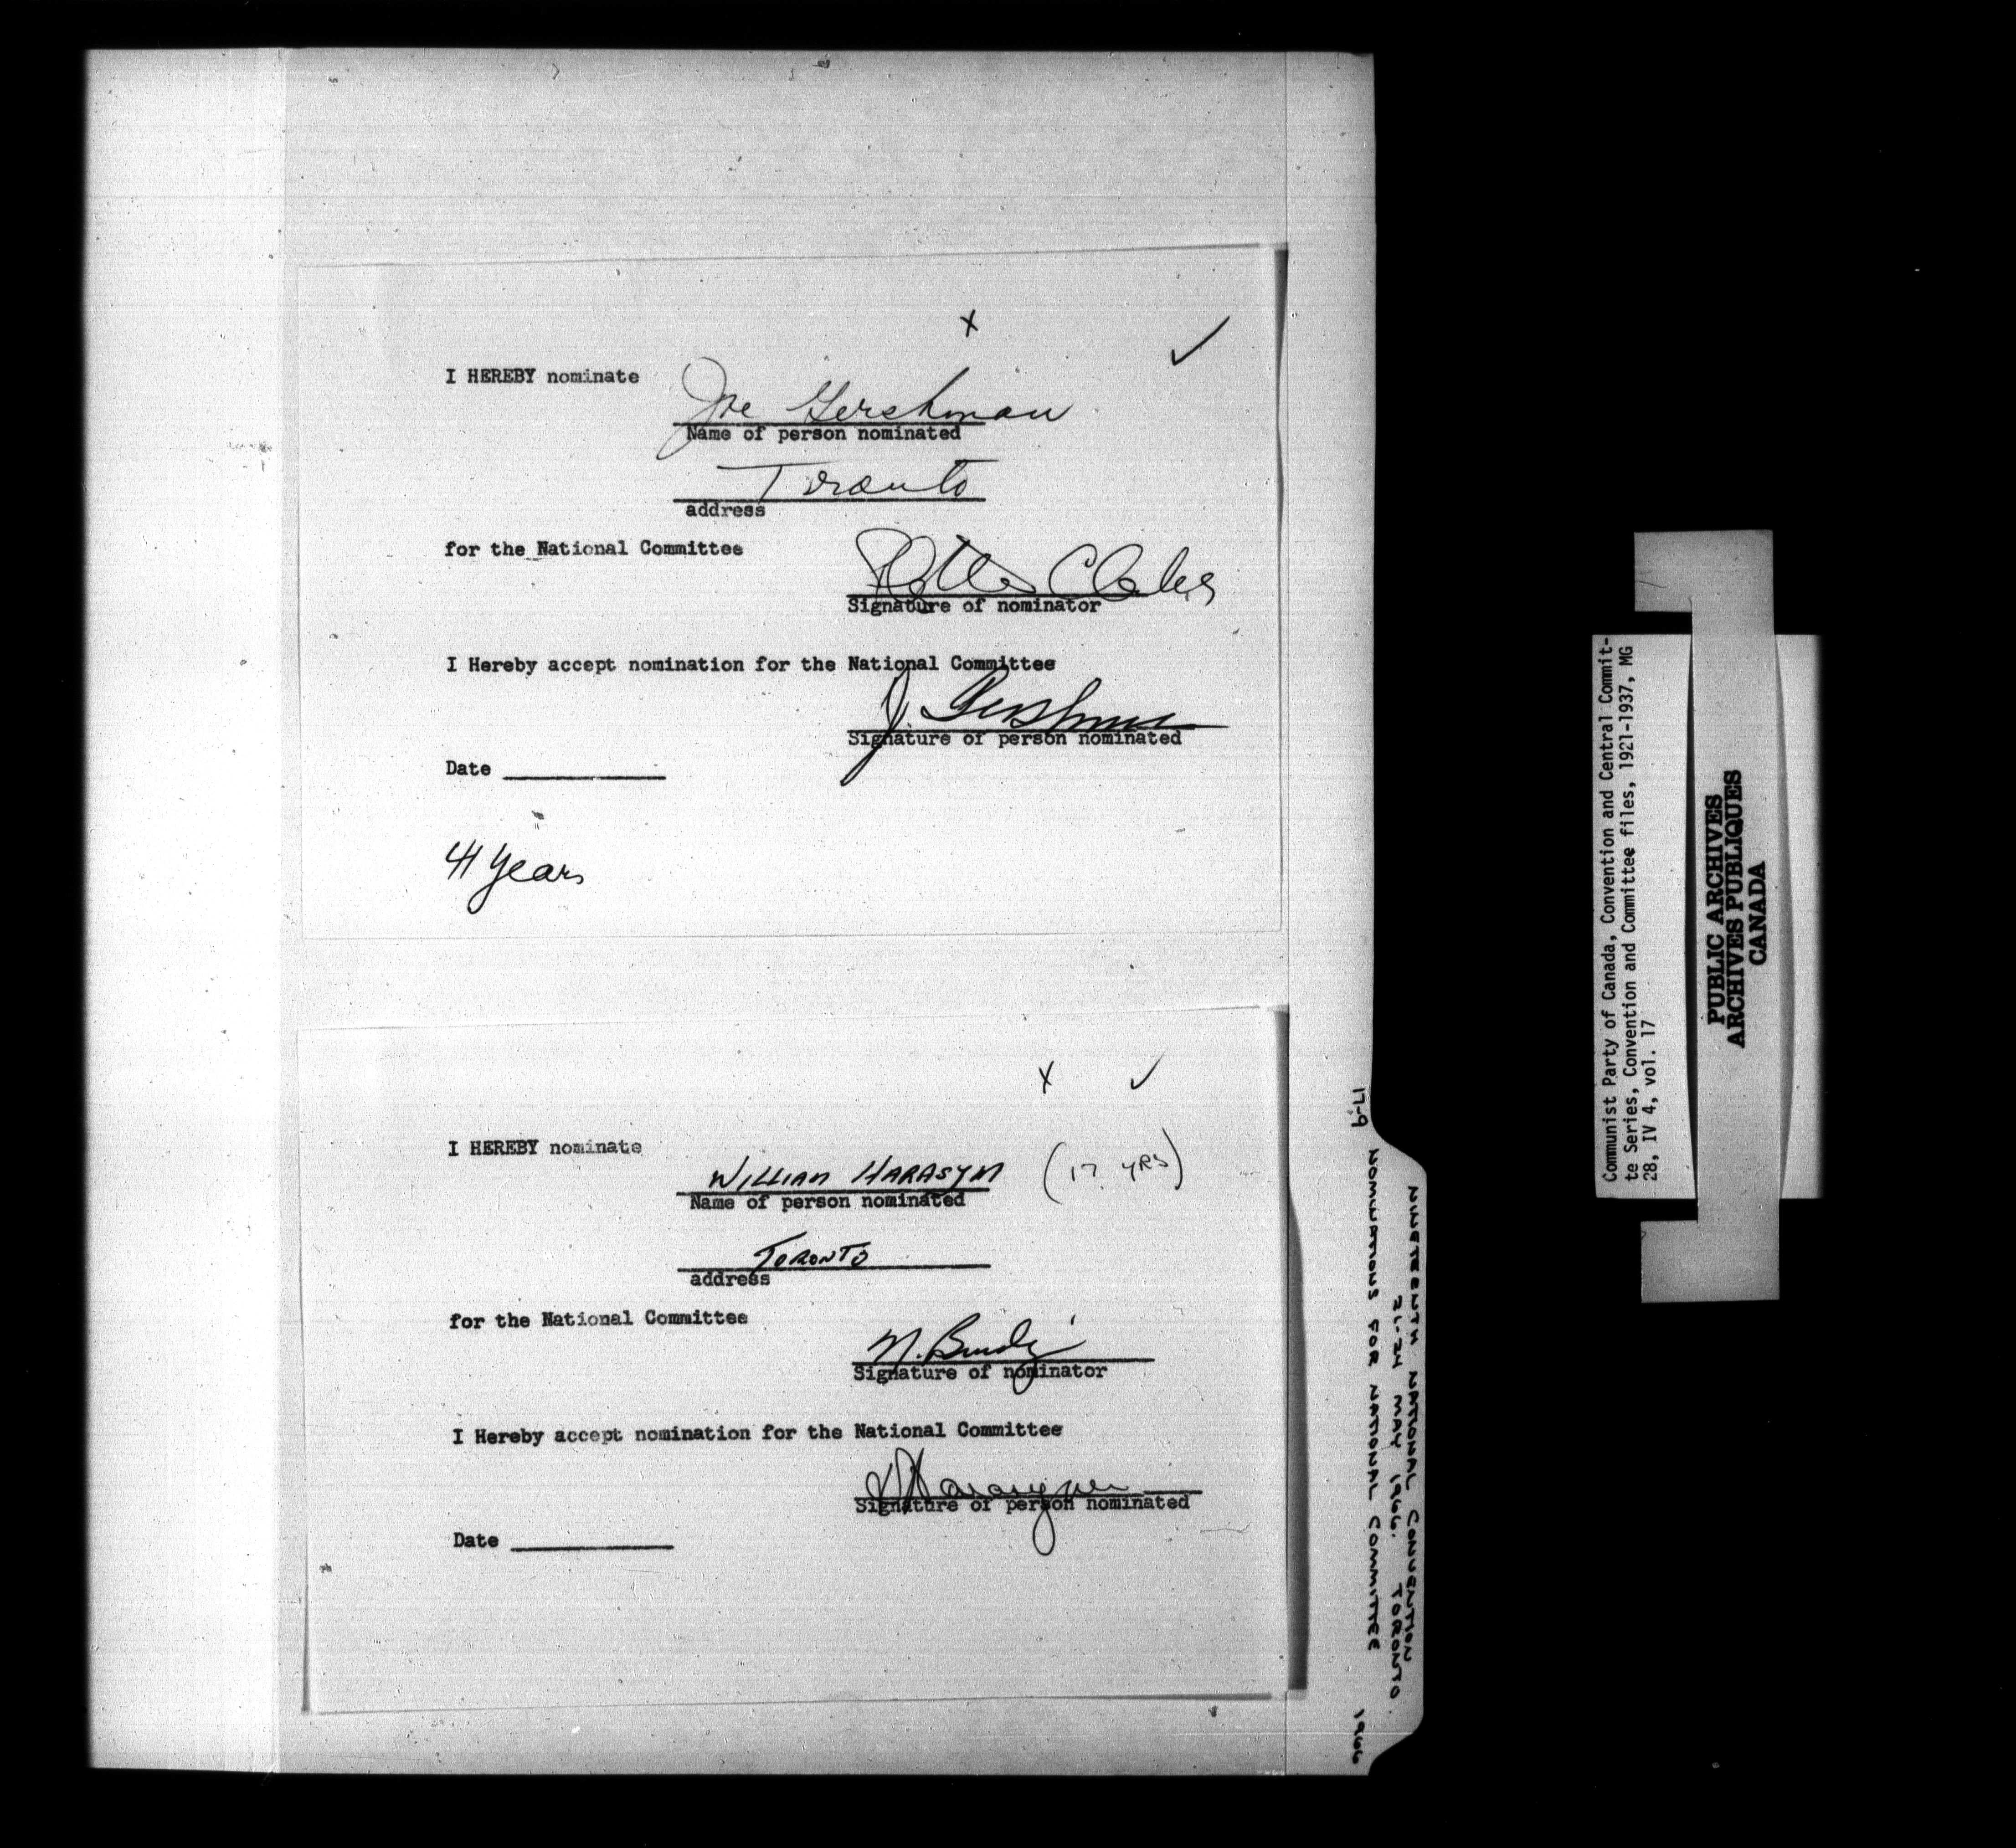 x ✓
I HEREBY nominate Joe Gershman
Name of person nominated
Toronto
address
for the National Committee
Signature of nominator
I Hereby accept nomination for the National Committee
J. Gershman
Signature of person nominated
Date
41 years
x ✓
I HEREBY nominate WILLIAM HARASYM (17 YRS)
Name of person nominated
TORONTO
address
for the National Committee
Signature of nominator
I Hereby accept nomination for the National Committee
W Harasym
Signature of person nominated
Date
17-9
NINETEENTH NATIONAL CONVENTION
21-24 MAY 1966. TORONTO
NOMINATIONS FOR NATIONAL COMMITTEE
1966
Communist Party of Canada, Convention and Central Commit-
te Series, Convention and Committee files, 1921-1937, MG
28, IV 4, vol. 17
PUBLIC ARCHIVES
ARCHIVES PUBLIQUES
CANADA